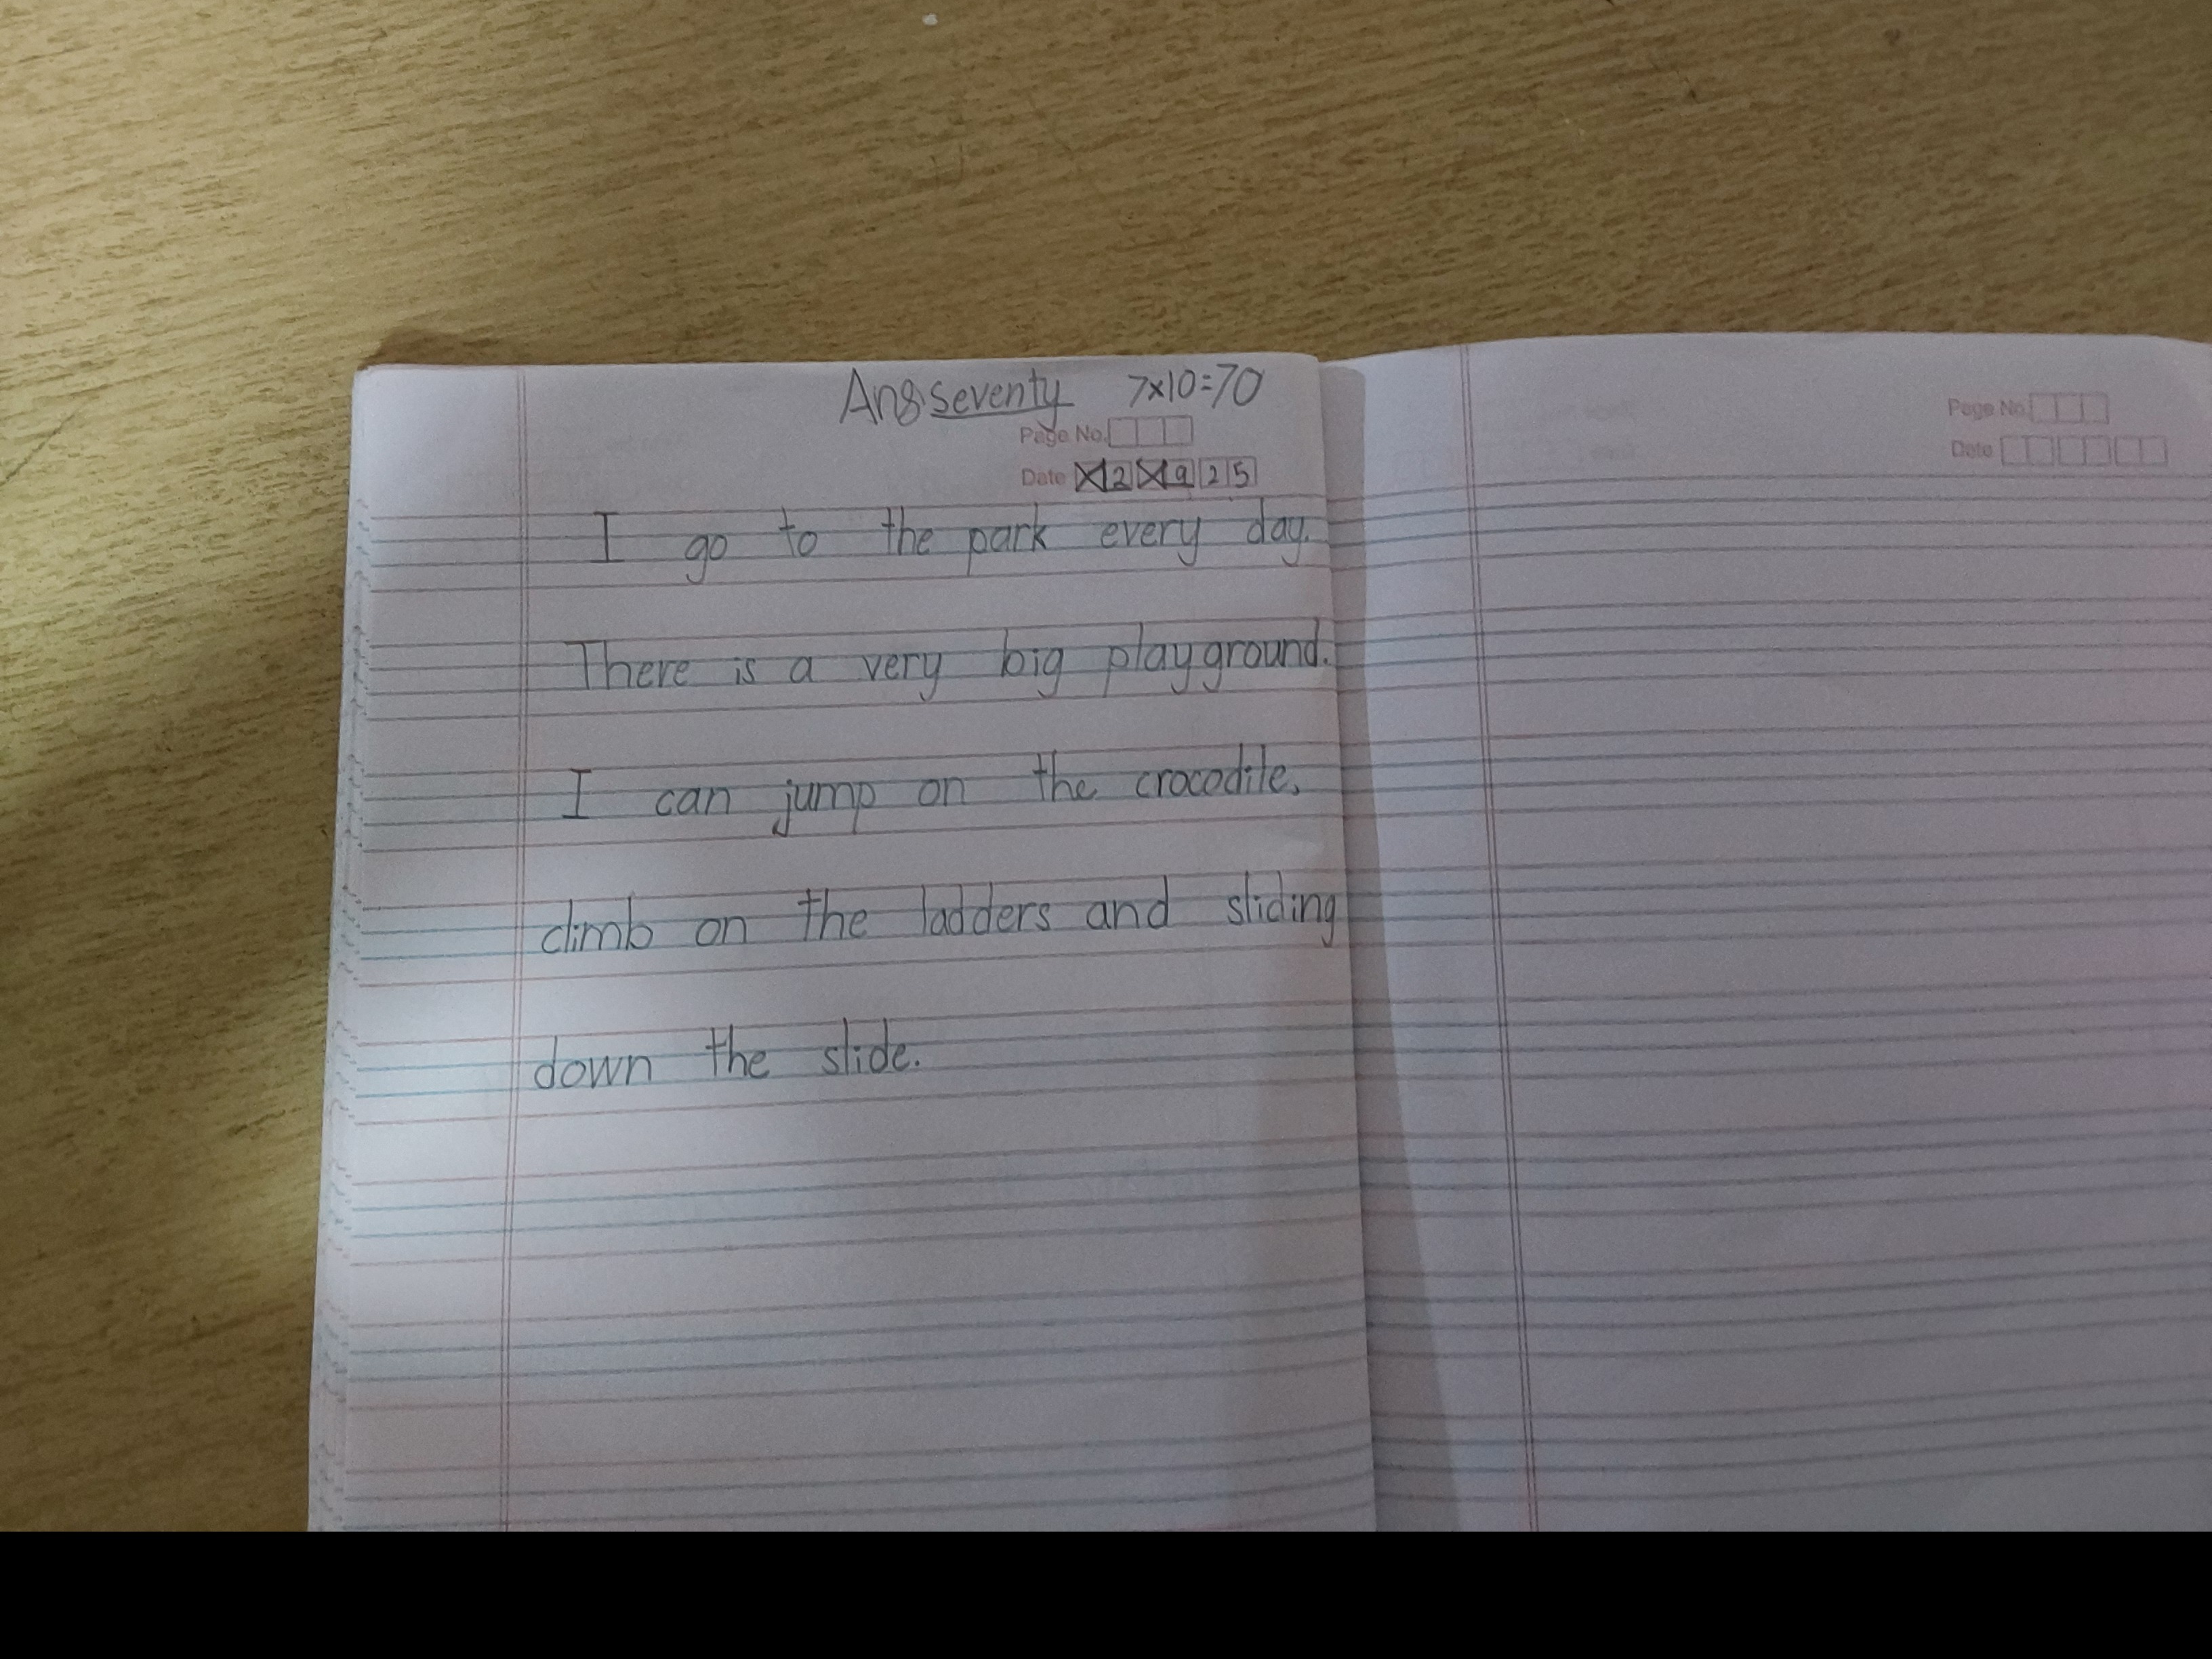 Ans. seventy 7x10=70
Page No.
Date X2 X9 25
I go to the park every day.
There is a very big playground.
I can jump on the crocodile,
climb on the ladders and sliding
down the slide.
Page No.
Date